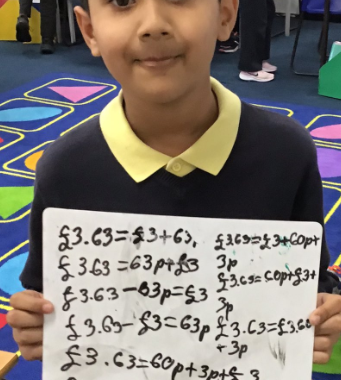 £3.63=£3+63.
£3.63=63p+£3
£3.63-63p=£3
£3.63-£3=63p
£3.63=60p+3p+£3
£3.63=£3+60p+
3p
£3.63=60p+£3+
3p
£3.63=£3.60
+3p